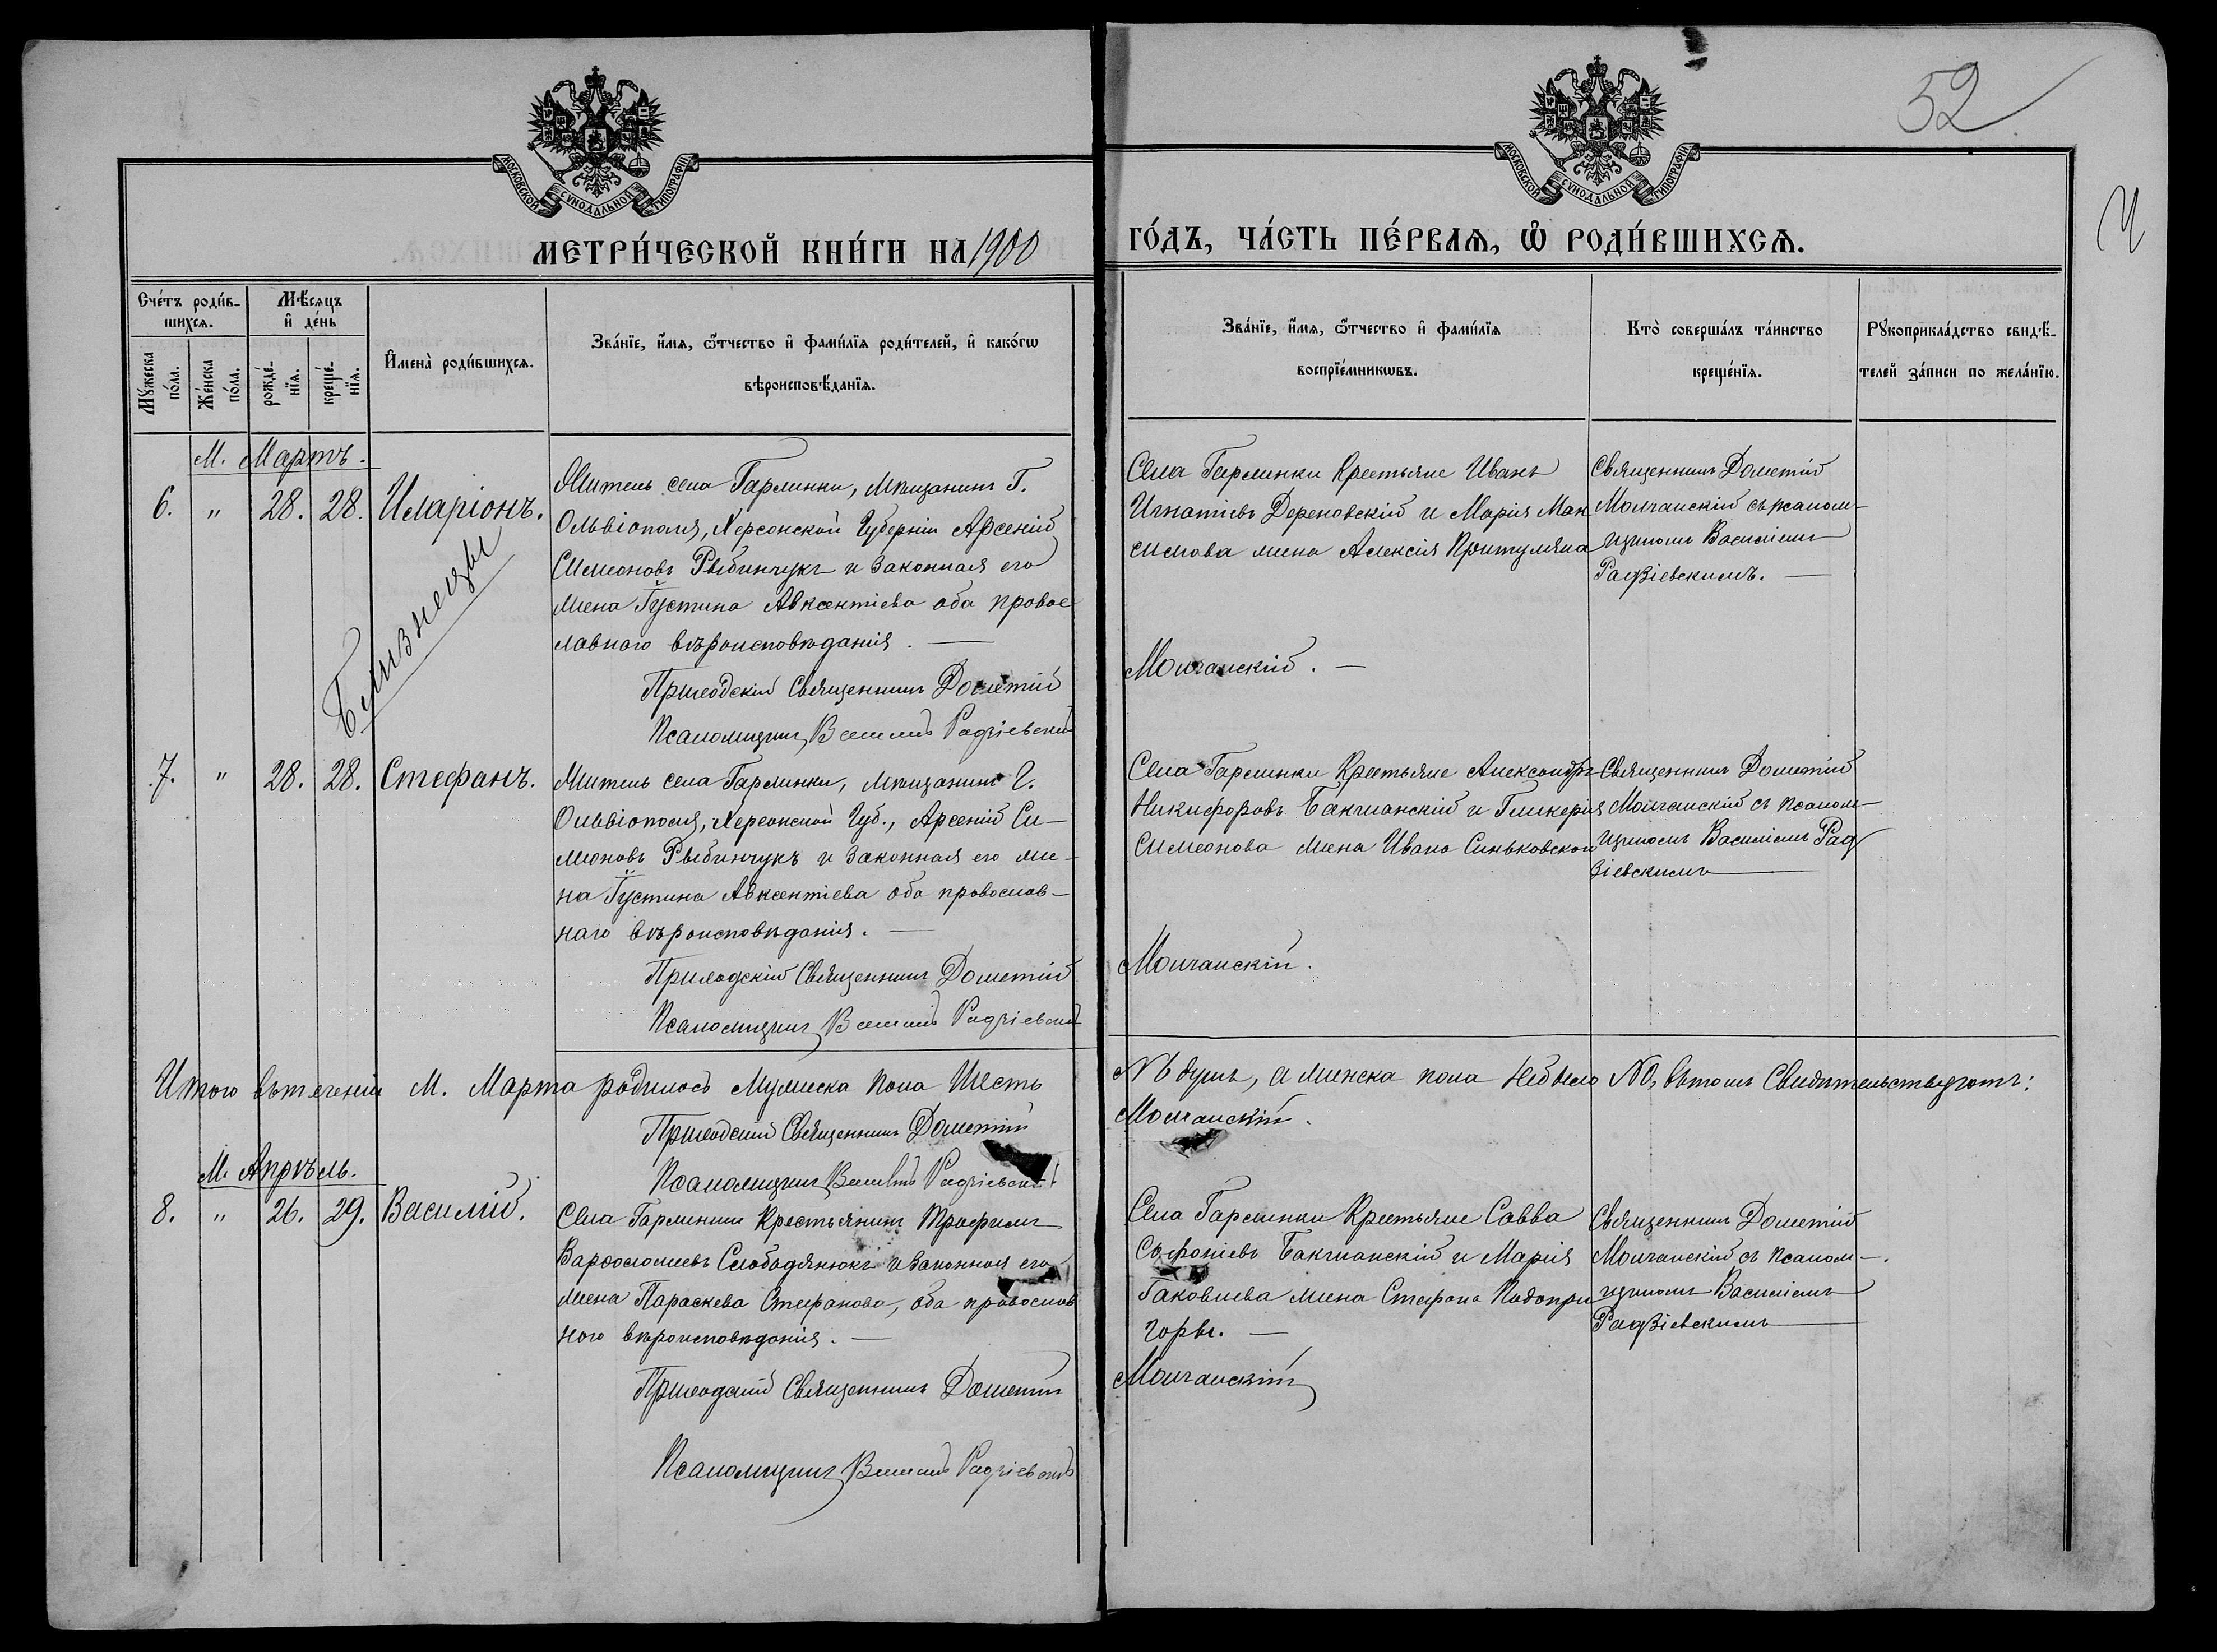 52
МОСКОВСКОЙ СѴНОДАЛЬНОЙ ТИПОГРАФІИ
МОСКОВСКОЙ СѴНОДАЛЬНОЙ ТИПОГРАФІИ
МЕТРИ́ЧЕСКОЙ КНИ́ГИ НА 1900
ГО́ДЪ, ЧА́СТЬ ПЕ́РВАЯ, Ѡ РОДИ́ВШИХСЯ.
Сче́тъ роди́в-
шихся.
Мѣ́сяцъ
и҆ де́нь
Мꙋ́жеска
по́ла.
Же́нска
по́ла.
рожде́-
нїя.
креще́-
нїя.
И҆мена̀ роди́вшихся.
Зва́нїе, и҆́мя, ѻ҆́тчество и҆ фами́лїя роди́телей, и҆ како́гѡ
вѣроисповѣ́данїя.
Зва́нїе, и҆́мя, ѻ҆́тчество и҆ фами́лїя
воспрїе́мникѡвъ.
Кто̀ соверша́лъ та́инство
креще́нїя.
Рꙋкоприкла́дство свидѣ́-
телей за́писи по жела́нїю.
М. Мартъ.
6. " 28. 28. Иларіонъ.
Житель села Гарминки, мѣщанинъ Г.
Ольвіополя, Херсонской Губерніи Арсеній
Симеоновъ Рыбинчукъ и законная его
жена Іустина Авксентіева оба правос
лавнаго вѣроисповѣданія. —
Приходскій Священникъ Дометій
Псаломщикъ Василій Радзіевскій
Села Гарминки Крестьяне Иванъ
Игнатіевъ Дереновскій и Марія Мак
симова жена Алексія Притуляка
Молчанскій. —
Священникъ Дометій
Молчанскій съ псалом-
щикомъ Василіемъ
Радзіевскимъ. —
Близнецы
7. " 28. 28. Стефанъ.
Житель села Гарминки, мѣщанинъ Г.
Ольвіополя, Херсонской Губ., Арсеній Си-
меоновъ Рыбинчукъ и законная его же-
на Іустина Авксентіева оба православ-
наго вѣроисповѣданія. —
Приходскій Священникъ Дометій
Псаломщикъ Василій Радзіевскій
Села Гарминки Крестьяне Александръ
Никифоровъ Бакчманскій и Гликерія
Симеонова жена Ивана Синьковскаго
Молчанскій.
Священникъ Дометій
Молчанскій съ псалом-
щикомъ Василіемъ Рад
зіевскимъ —
Итого въ теченіи М. Марта родилось мужеска пола шесть
№ 6 душъ, а женска пола не было № 0, въ томъ свидѣтельствуютъ:
Приходскій Священникъ Дометій
Молчанскій.
Псаломщикъ Василій Радзіевскій
М. Апрѣль.
8. " 26. 29. Василій.
Села Гарминки Крестьянинъ Трофимъ
Варфоломеевъ Слободянюкъ и законная его
жена Параскева Стефанова, оба православ
наго вѣроисповѣданія. —
Приходскій Священникъ Дометій
Псаломщикъ Василій Радзіевскій
Села Гарминки Крестьяне Савва
Софоніевъ Бакчманскій и Марія
Іаковлева жена Стефана Подопри
горы. —
Молчанскій
Священникъ Дометій
Молчанскій съ псалом-
щикомъ Василіемъ
Радзіевскимъ —